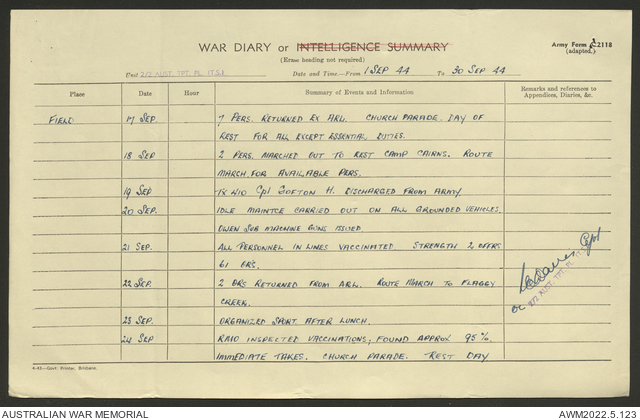 WAR DIARY or INTELLIGENCE SUMMARY
Army Form C2118
(adapted.)
(Erase heading not required)
Unit 2/2 AUST. TPT. PL. (T.S.)
Date and Time—From 1 SEP 44 To 30 SEP 44
Place Date Hour Summary of Events and Information Remarks and references to Appendices, Diaries, &c.
FIELD 17 SEP. 7 PERS. RETURNED EX ARL. CHURCH PARADE. DAY OF
REST FOR ALL EXCEPT ESSENTIAL DUTIES.
18 SEP 2 PERS. MARCHED OUT TO REST CAMP CAIRNS. ROUTE
MARCH FOR AVAILABLE PERS.
19 SEP TX 410 Cpl GOFTON H. DISCHARGED FROM ARMY
20 SEP. IDLE MAINTCE CARRIED OUT ON ALL GROUNDED VEHICLES.
OWEN SUB MACHINE GUNS ISSUED.
21 SEP. ALL PERSONNEL IN LINES VACCINATED. STRENGTH 2 OFFRS
61 ORS.
22 SEP. 2 ORS RETURNED FROM ARL. ROUTE MARCH TO FLAGGY
CREEK.
23 SEP. ORGANIZED SPORT AFTER LUNCH.
24 SEP RMO INSPECTED VACCINATIONS; FOUND APPROX 95%.
IMMEDIATE TAKES. CHURCH PARADE. REST DAY
Capt
OC 2/2 AUST. TPT. PL. (T.S.)
4-43—Govt. Printer, Brisbane.
AUSTRALIAN WAR MEMORIAL
AWM2022.5.123